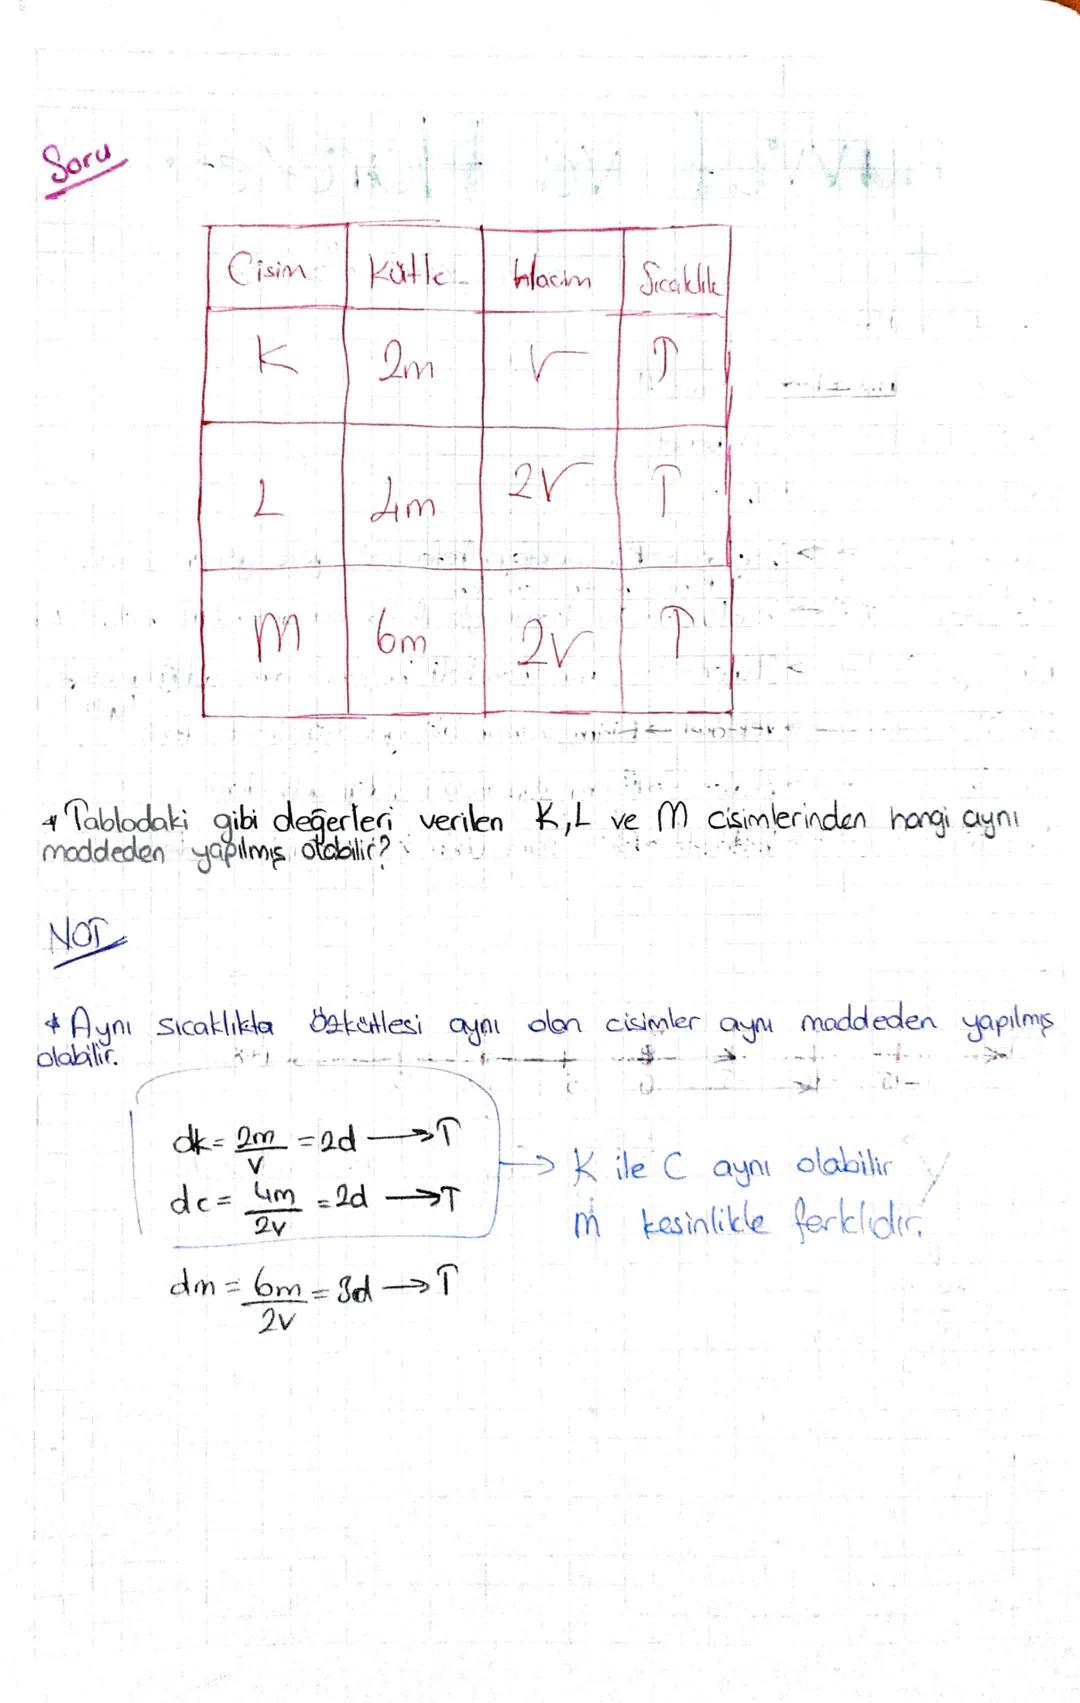 Soru
Cisim Kütle Hacim Sıcaklık
K 2m V T
L 4m 2V T
M 6m 2V T
* Tablodaki gibi değerleri verilen K,L ve M cisimlerinden hangi aynı
maddeden yapılmış olabilir?
NOT
* Aynı sıcaklıkta özkütlesi aynı olan cisimler aynı maddeden yapılmış
olabilir.
dk = 2m/V = 2d → T
dc = 4m/2V = 2d → T
→ K ile C aynı olabilir
m kesinlikle farklıdır.
dm = 6m/2V = 3d → T